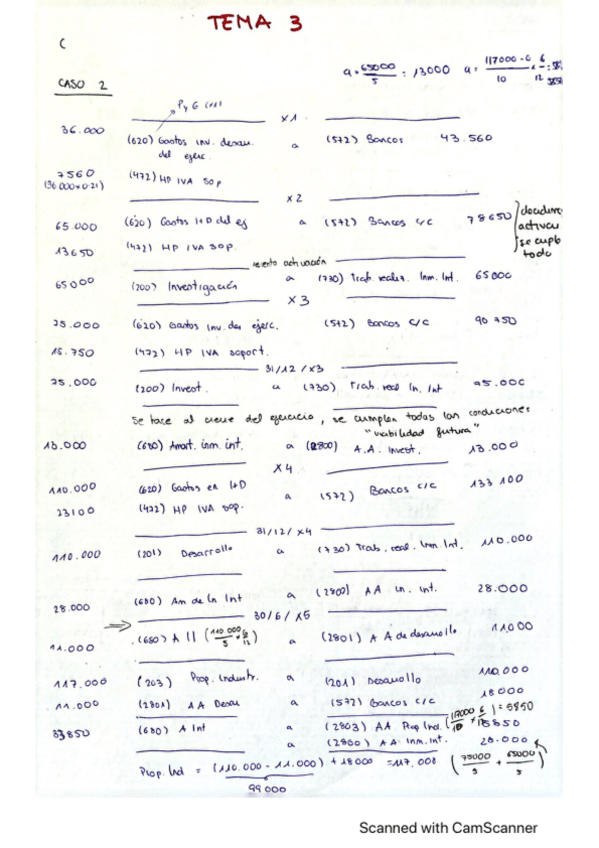 TEMA 3
C
CASO 2
a = 65000/5 = 13000 a = 117000-0/10 · 6/12
PyG
X1
36.000 (620) Gastos inv. desarr. del ejerc. a (572) Bancos 43.560
7560 (36.000x0.21) (472) HP IVA sop
X2
65.000 (620) Gastos I+D del ej a (572) Bancos c/c 78650
13650 (472) HP IVA sop.
se cumple todo
asiento activación
65000 (200) Investigación a (730) Trab. realiz. Inm. Int. 65000
X3
75.000 (620) Gastos inv. des ejerc. a (572) Bancos c/c 90750
15.750 (472) HP IVA soport.
31/12/X3
75.000 (200) Invest. a (730) Trab. real In. Int 75.000
Se hace al cierre del ejercicio, se cumplen todas las condiciones
"viabilidad futura"
13.000 (680) Amort. inm. int. a (2800) A.A. Invest. 13.000
X4
110.000 (620) Gastos en I+D a (572) Bancos c/c 133100
23100 (472) HP IVA sop.
31/12/X4
110.000 (201) Desarrollo a (730) Trab. real. Inm Int. 110.000
28.000 (680) Am de In Int a (2800) AA in. int. 28.000
30/6/X5
11.000 (680) A II (110.000/5 · 6/12) a (2801) A A de desarrollo 11.000
117.000 (203) Prop. Industr. a (201) Desarrollo 110.000
11.000 (2801) AA Desar a (572) Bancos c/c 18000
33850 (680) A Int a (2803) AA Prop Ind. (117000/10 · 6/12) = 5850 5850
a (2800) AA inm. int. 28.000
Prop. Ind = (110.000 - 11.000) + 18000 = 117,000 (75000/5 + 65000/5)
99000
Scanned with CamScanner